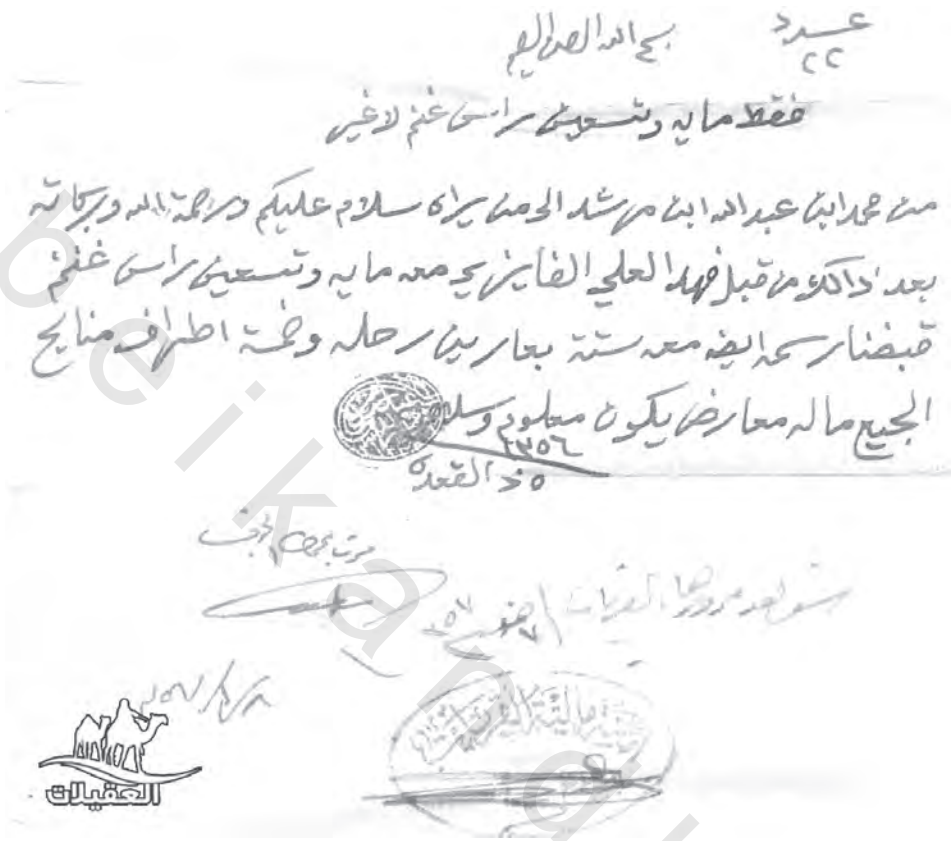 عدد
٢٢
بسم الله الرحمن الرحيم
فقط مايه وتسعين راس غنم لاغير
من محمد ابن عبدالله ابن مرشد الى من يراه سلام عليكم ورحمة الله وبركاته
بعد ذالك من قبل فهد العلي الفايز يجي معه مايه وتسعين راس غنم
قبضنا رسمه ايضه معه ستة بعارين رحله وخمسة اطراف منايح
الجميع ماله معارض يكون معلوم وسلام
١٣٥٦
٥ ذ القعده
مالية القريات
العقيلات
beikan